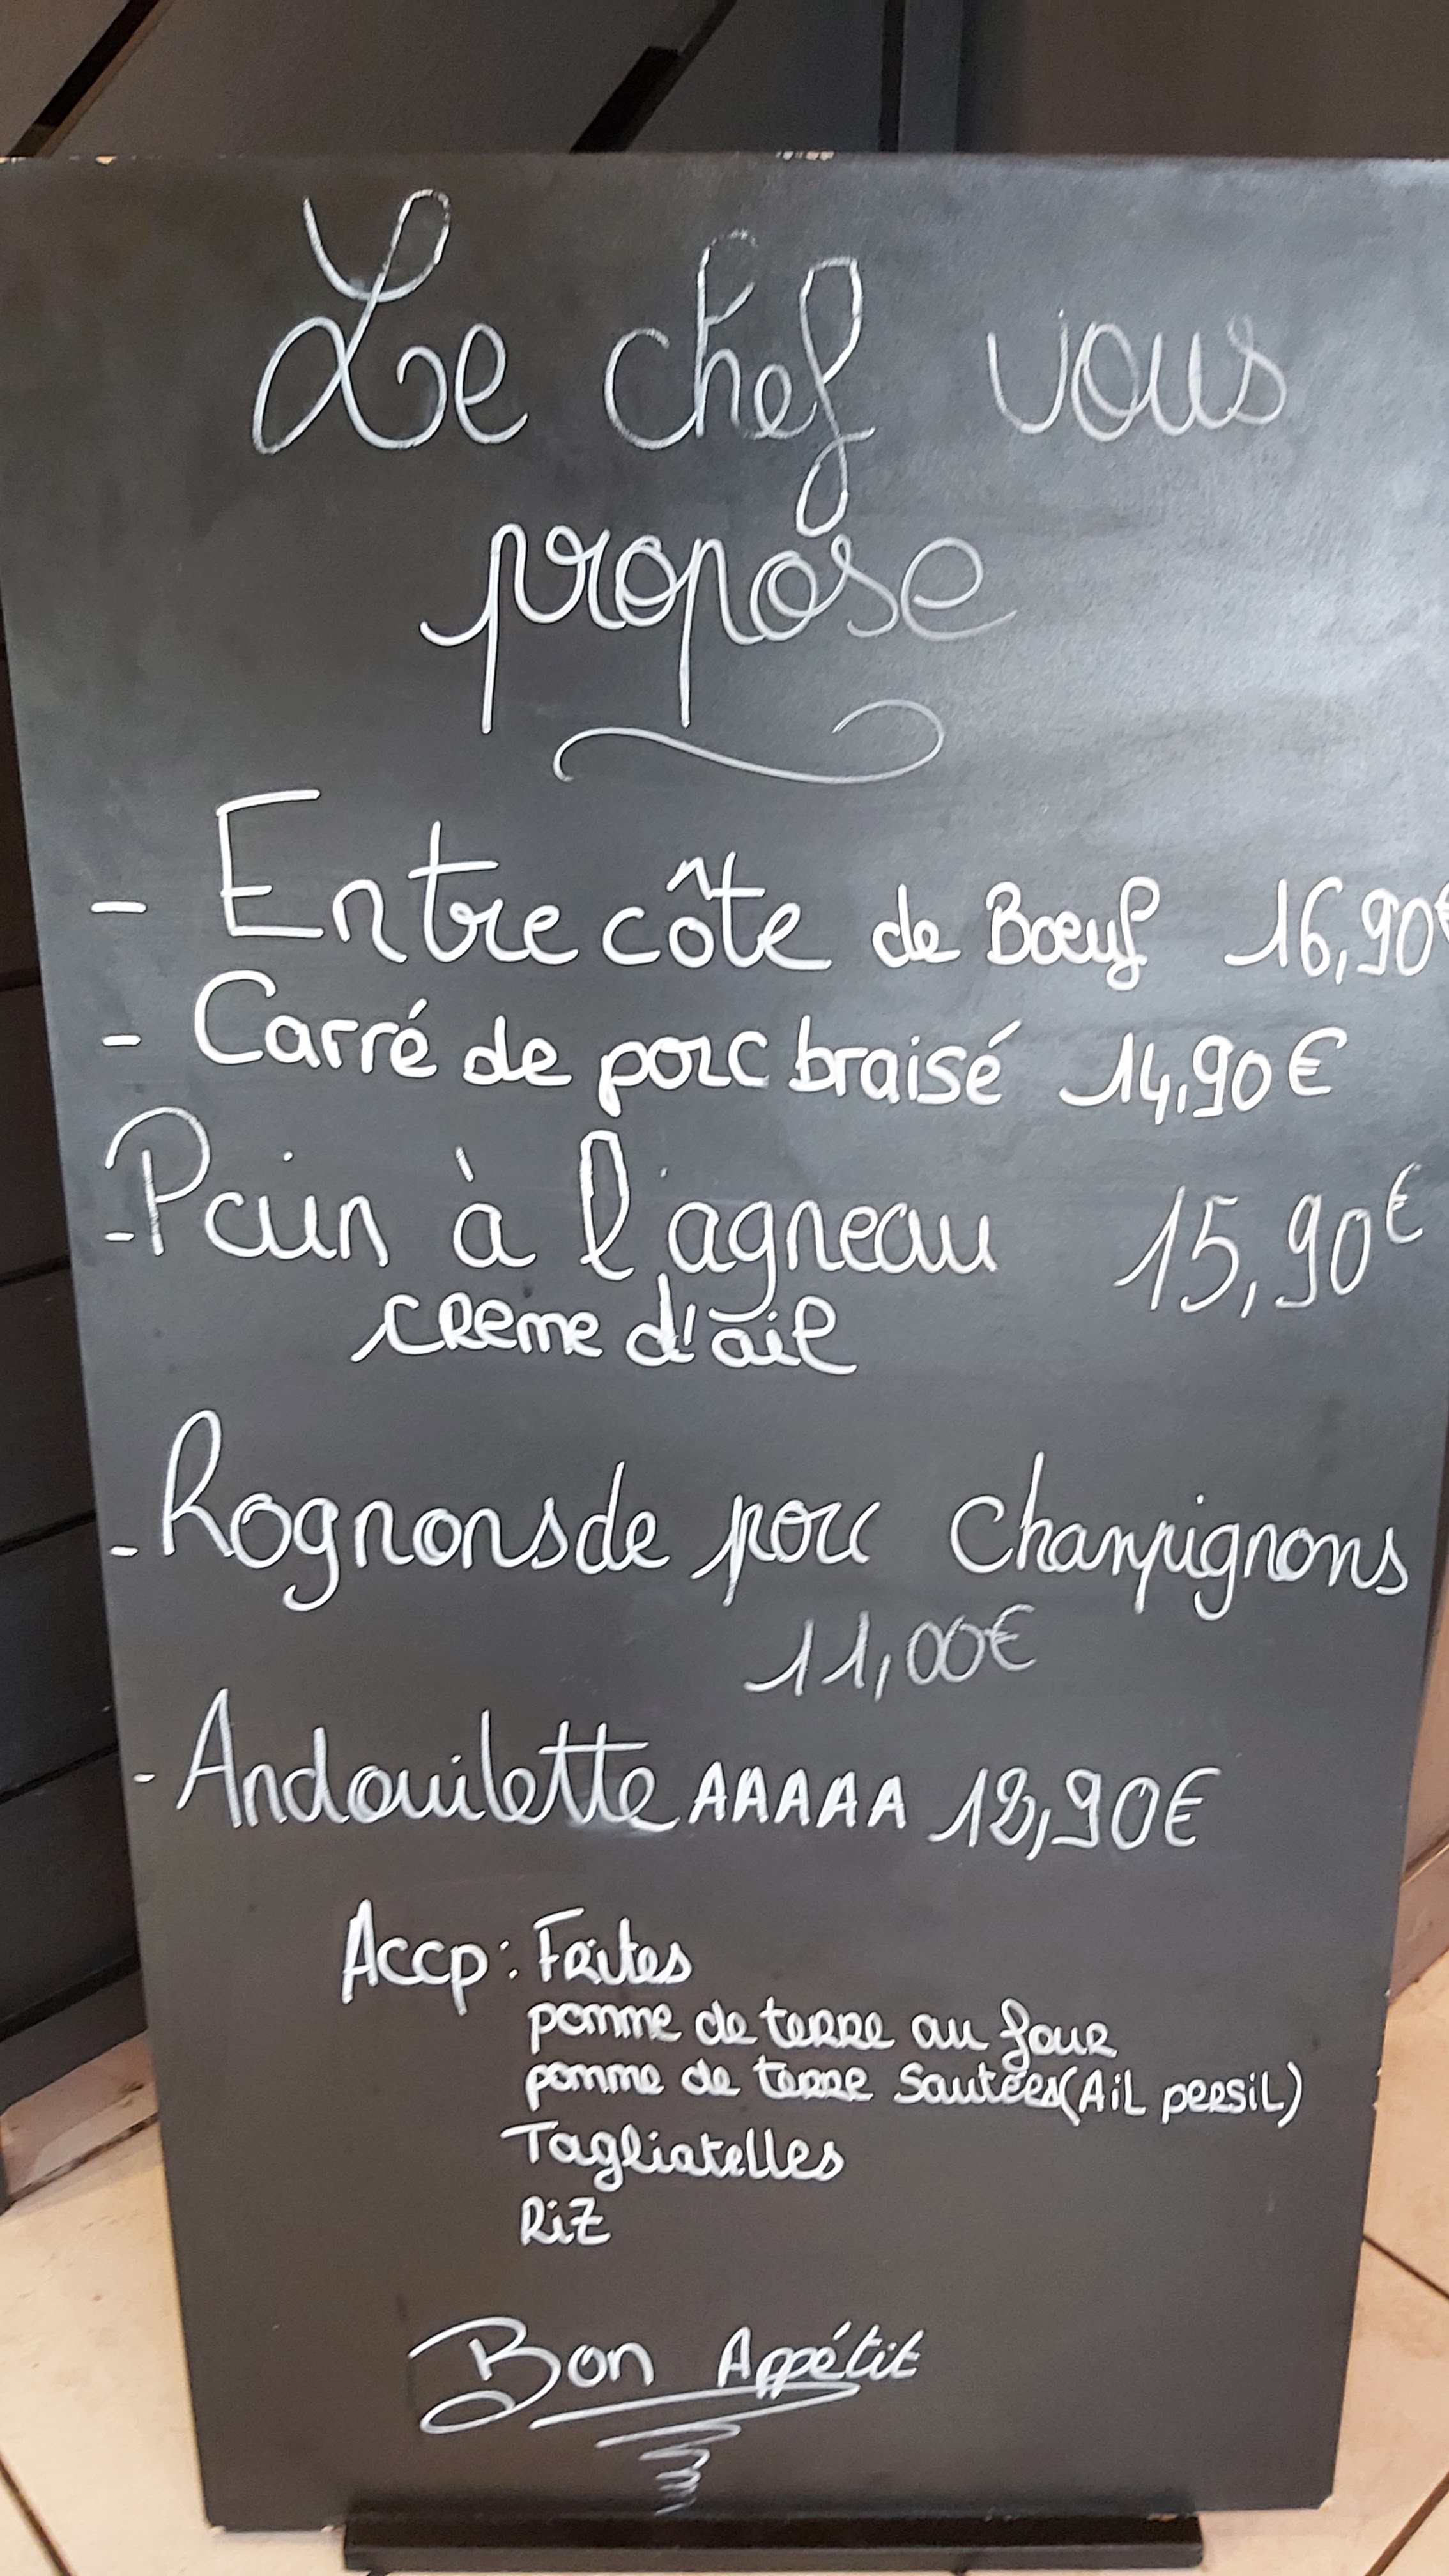 Le chef vous
propose
- Entrecôte de Bœuf 16,90€
- Carré de porc braisé 14,90€
- Pain à l'agneau 15,90€
creme d'ail
- Rognons de porc Champignons
11,00€
- Andouilette AAAAA 12,90€
Accp: Frites
pomme de terre au four
pomme de terre Sautées (Ail persil)
Tagliatelles
Riz
Bon Appétit